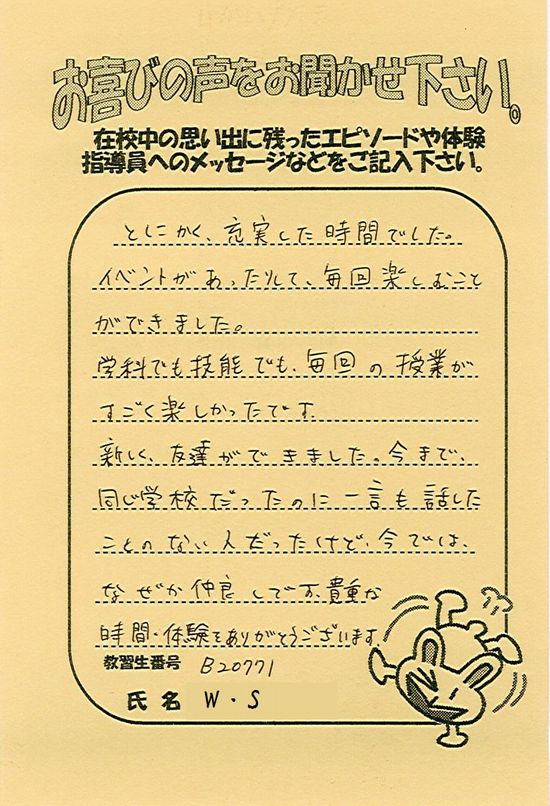 お喜びの声をお聞かせ下さい。
在校中の思い出に残ったエピソードや体験
指導員へのメッセージなどをご記入下さい。
とにかく、充実した時間でした。
イベントがあったりして、毎回楽しむこと
ができました。
学科でも技能でも、毎回の授業が
すごく楽しかったです
新しく、友達ができました。今まで、
同じ学校だったのに一言も話した
ことのない人だったけど、今では、
なぜか仲良しです。貴重な
時間・体験をありがとうございます。
教習生番号 B20771
氏名 W・S